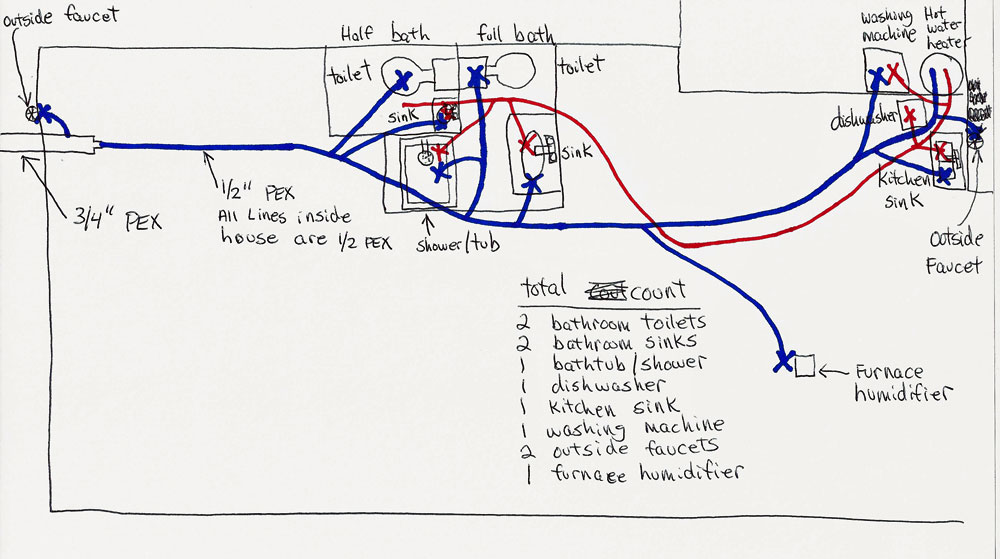 outside faucet
Half bath
full bath
washing
machine
Hot
water
heater
toilet
toilet
sink
dishwasher
sink
Kitchen
sink
3/4" PEX
1/2" PEX
All Lines inside
house are 1/2 PEX
shower/tub
Outside
Faucet
total count
2 bathroom toilets
2 bathroom sinks
1 bathtub/shower
1 dishwasher
1 kitchen sink
1 washing machine
2 outside faucets
1 furnace humidifier
Furnace
humidifier